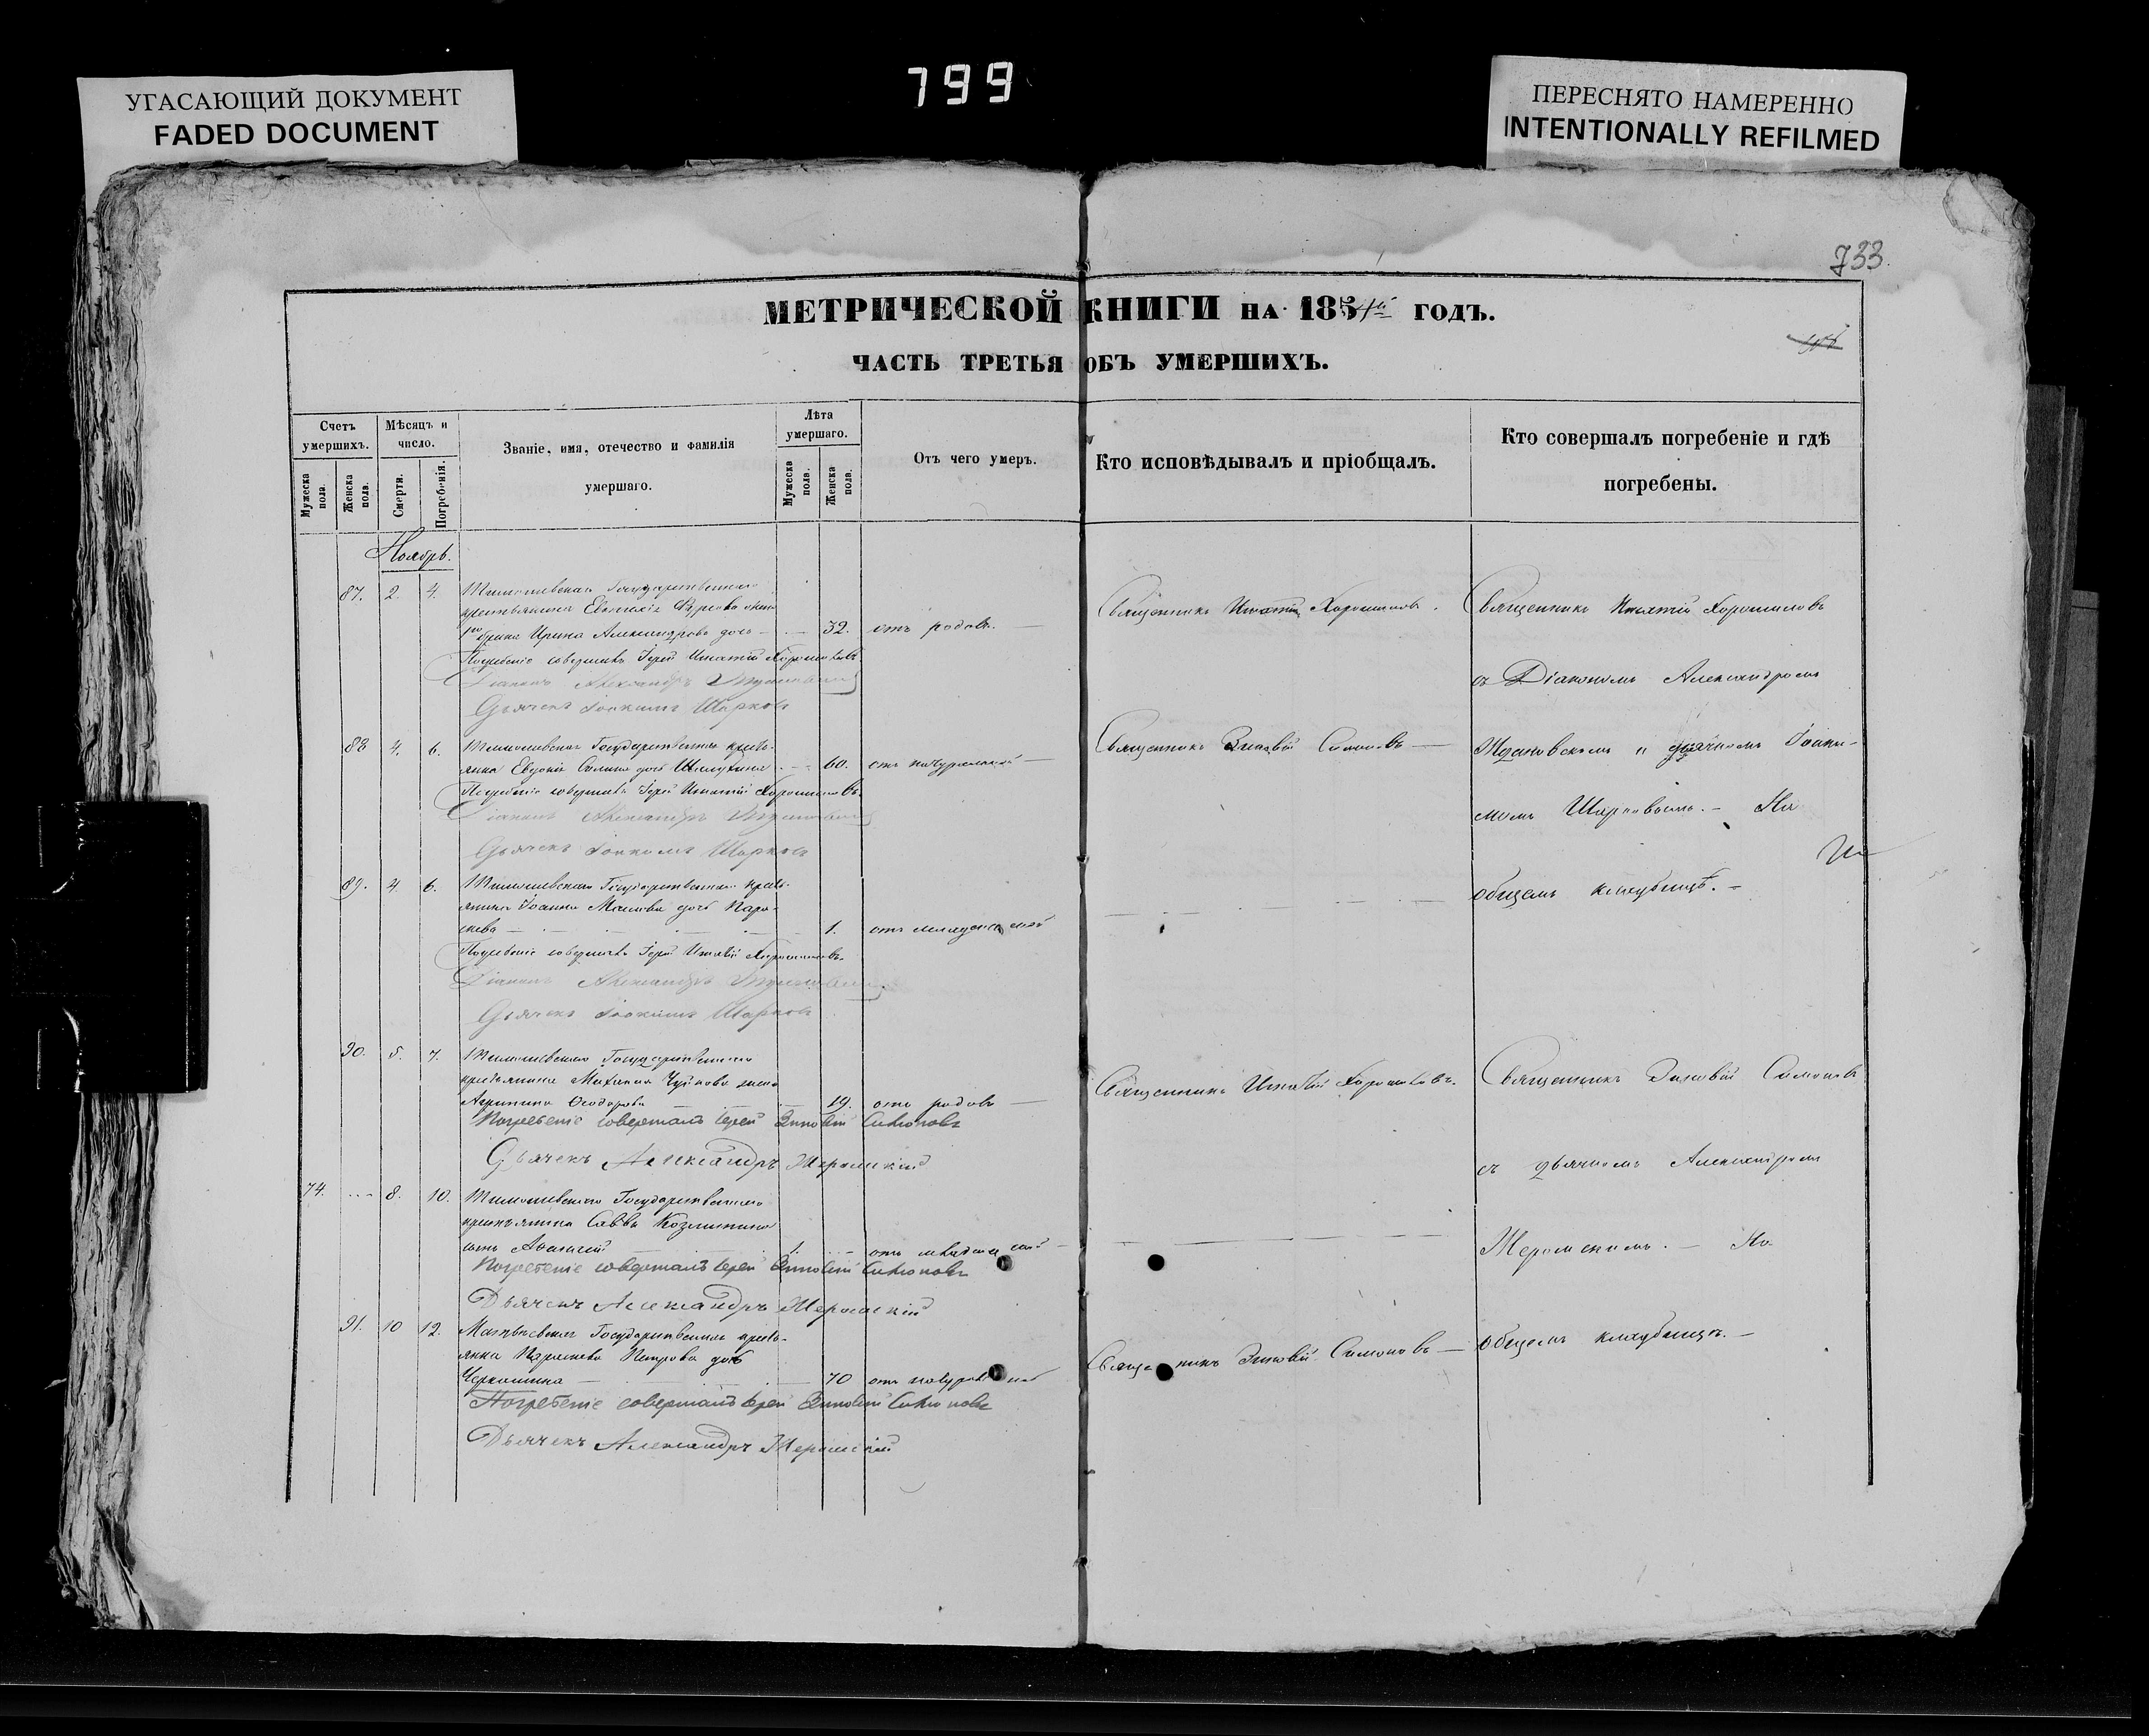 УГАСАЮЩИЙ ДОКУМЕНТ
FADED DOCUMENT
799
ПЕРЕСНЯТО НАМЕРЕННО
INTENTIONALLY REFILMED
733.
МЕТРИЧЕСКОЙ КНИГИ НА 1854й ГОДЪ.
ЧАСТЬ ТРЕТЬЯ ОБЪ УМЕРШИХЪ.
Счетъ умершихъ.
Мужеска пола.
Женска пола.
Мѣсяцъ и число.
Смерти.
Погребенія.
Званіе, имя, отечество и фамилія
умершаго.
Лѣта умершаго.
Мужеска пола.
Женска пола.
Отъ чего умеръ.
Кто исповѣдывалъ и пріобщалъ.
Кто совершалъ погребеніе и гдѣ
погребены.
Ноябрь.
87. 2. 4. Государственнаго
крестьянина жена
Ирина Александрова дочь 32. отъ родовъ.
Погребеніе совершалъ Іерей Игнатій Хорошиловъ
Діаконъ Александръ
Дьячекъ Іоакимъ Шарковъ
Священникъ Игнатій Хорошиловъ.
Священникъ Игнатій Хорошиловъ
съ Діакономъ Александромъ
88 4. 6. Государственная кресть-
янка Евдокія дочь 60. отъ
Погребеніе совершалъ Іерей Игнатій Хорошиловъ
Діаконъ Александръ
Дьячекъ Іоакимъ Шарковъ
Священникъ Зиновій Симоновъ
и дьячкомъ Іоаки-
момъ Шарковымъ. - На
общемъ кладбищѣ. -
89. 4 6. Государственнаго кресть-
янина Іоанна дочь Парас-
кева 1. отъ младенческой
Погребеніе совершалъ Іерей Игнатій Хорошиловъ
Діаконъ Александръ
Дьячекъ Іоакимъ Шарковъ
90. 5. 7. Государственнаго
крестьянина Михаила Чуйкова жена
Агрипина Ѳеодорова 19. отъ родовъ
Погребеніе совершалъ Іерей Зиновій Симоновъ
Дьячекъ Александръ Жеромскій
Священникъ Игнатій Хорошиловъ.
Священникъ Зиновій Симоновъ
съ дьячкомъ Александромъ
74. 8. 10. Государственнаго
крестьянина Саввы
сынъ 1. отъ младенческой
Погребеніе совершалъ Іерей Зиновій Симоновъ
Дьячекъ Александръ Жеромскій
Жеромскимъ. - На
91. 10 12. Государственная кресть-
янка Параскева Петрова дочь
70 отъ натуральной
Погребеніе совершалъ Іерей Зиновій Симоновъ
Дьячекъ Александръ Жеромскій
Священникъ Зиновій Симоновъ
общемъ кладбищѣ. -